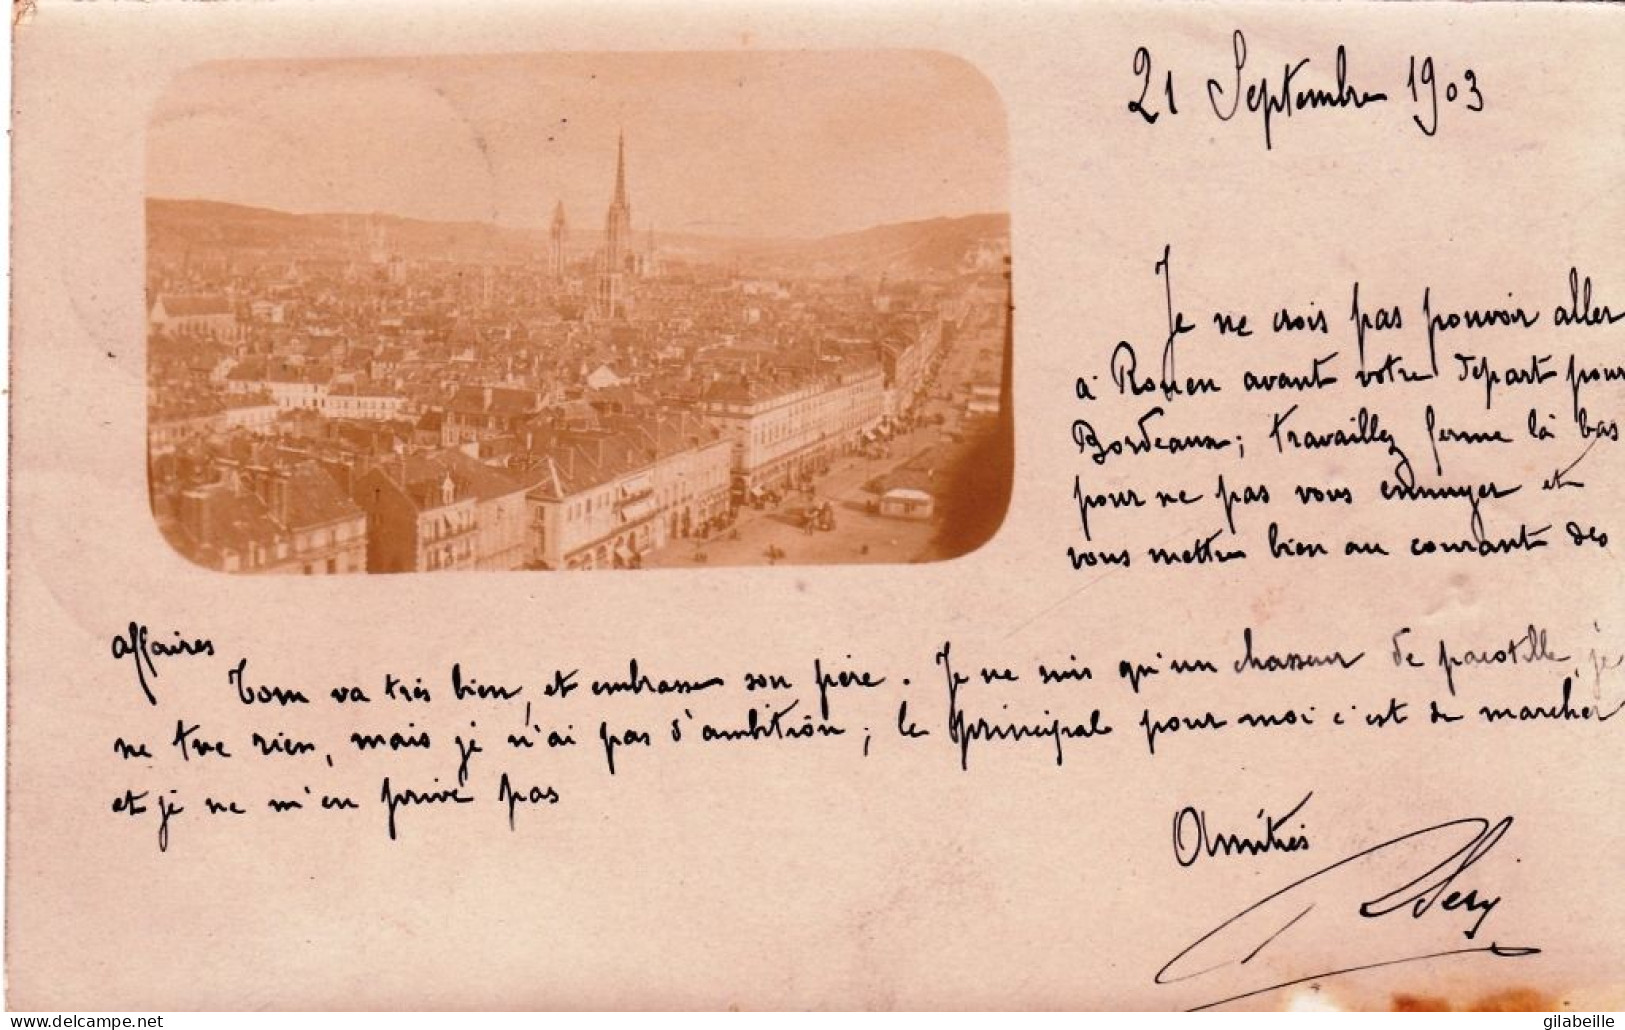 21 Septembre 1903
Je ne crois pas pouvoir aller
à Rouen avant votre départ pour
Bordeaux ; travaillez ferme là bas
pour ne pas vous ennuyer et
vous mettre bien au courant des
affaires
Tom va très bien, et embrasse son père. Je ne suis qu'un chasseur de pacotille, je
ne tue rien, mais je n'ai pas d'ambition ; le principal pour moi c'est de marcher
et je ne m'en prive pas
Amitiés
gilabeille